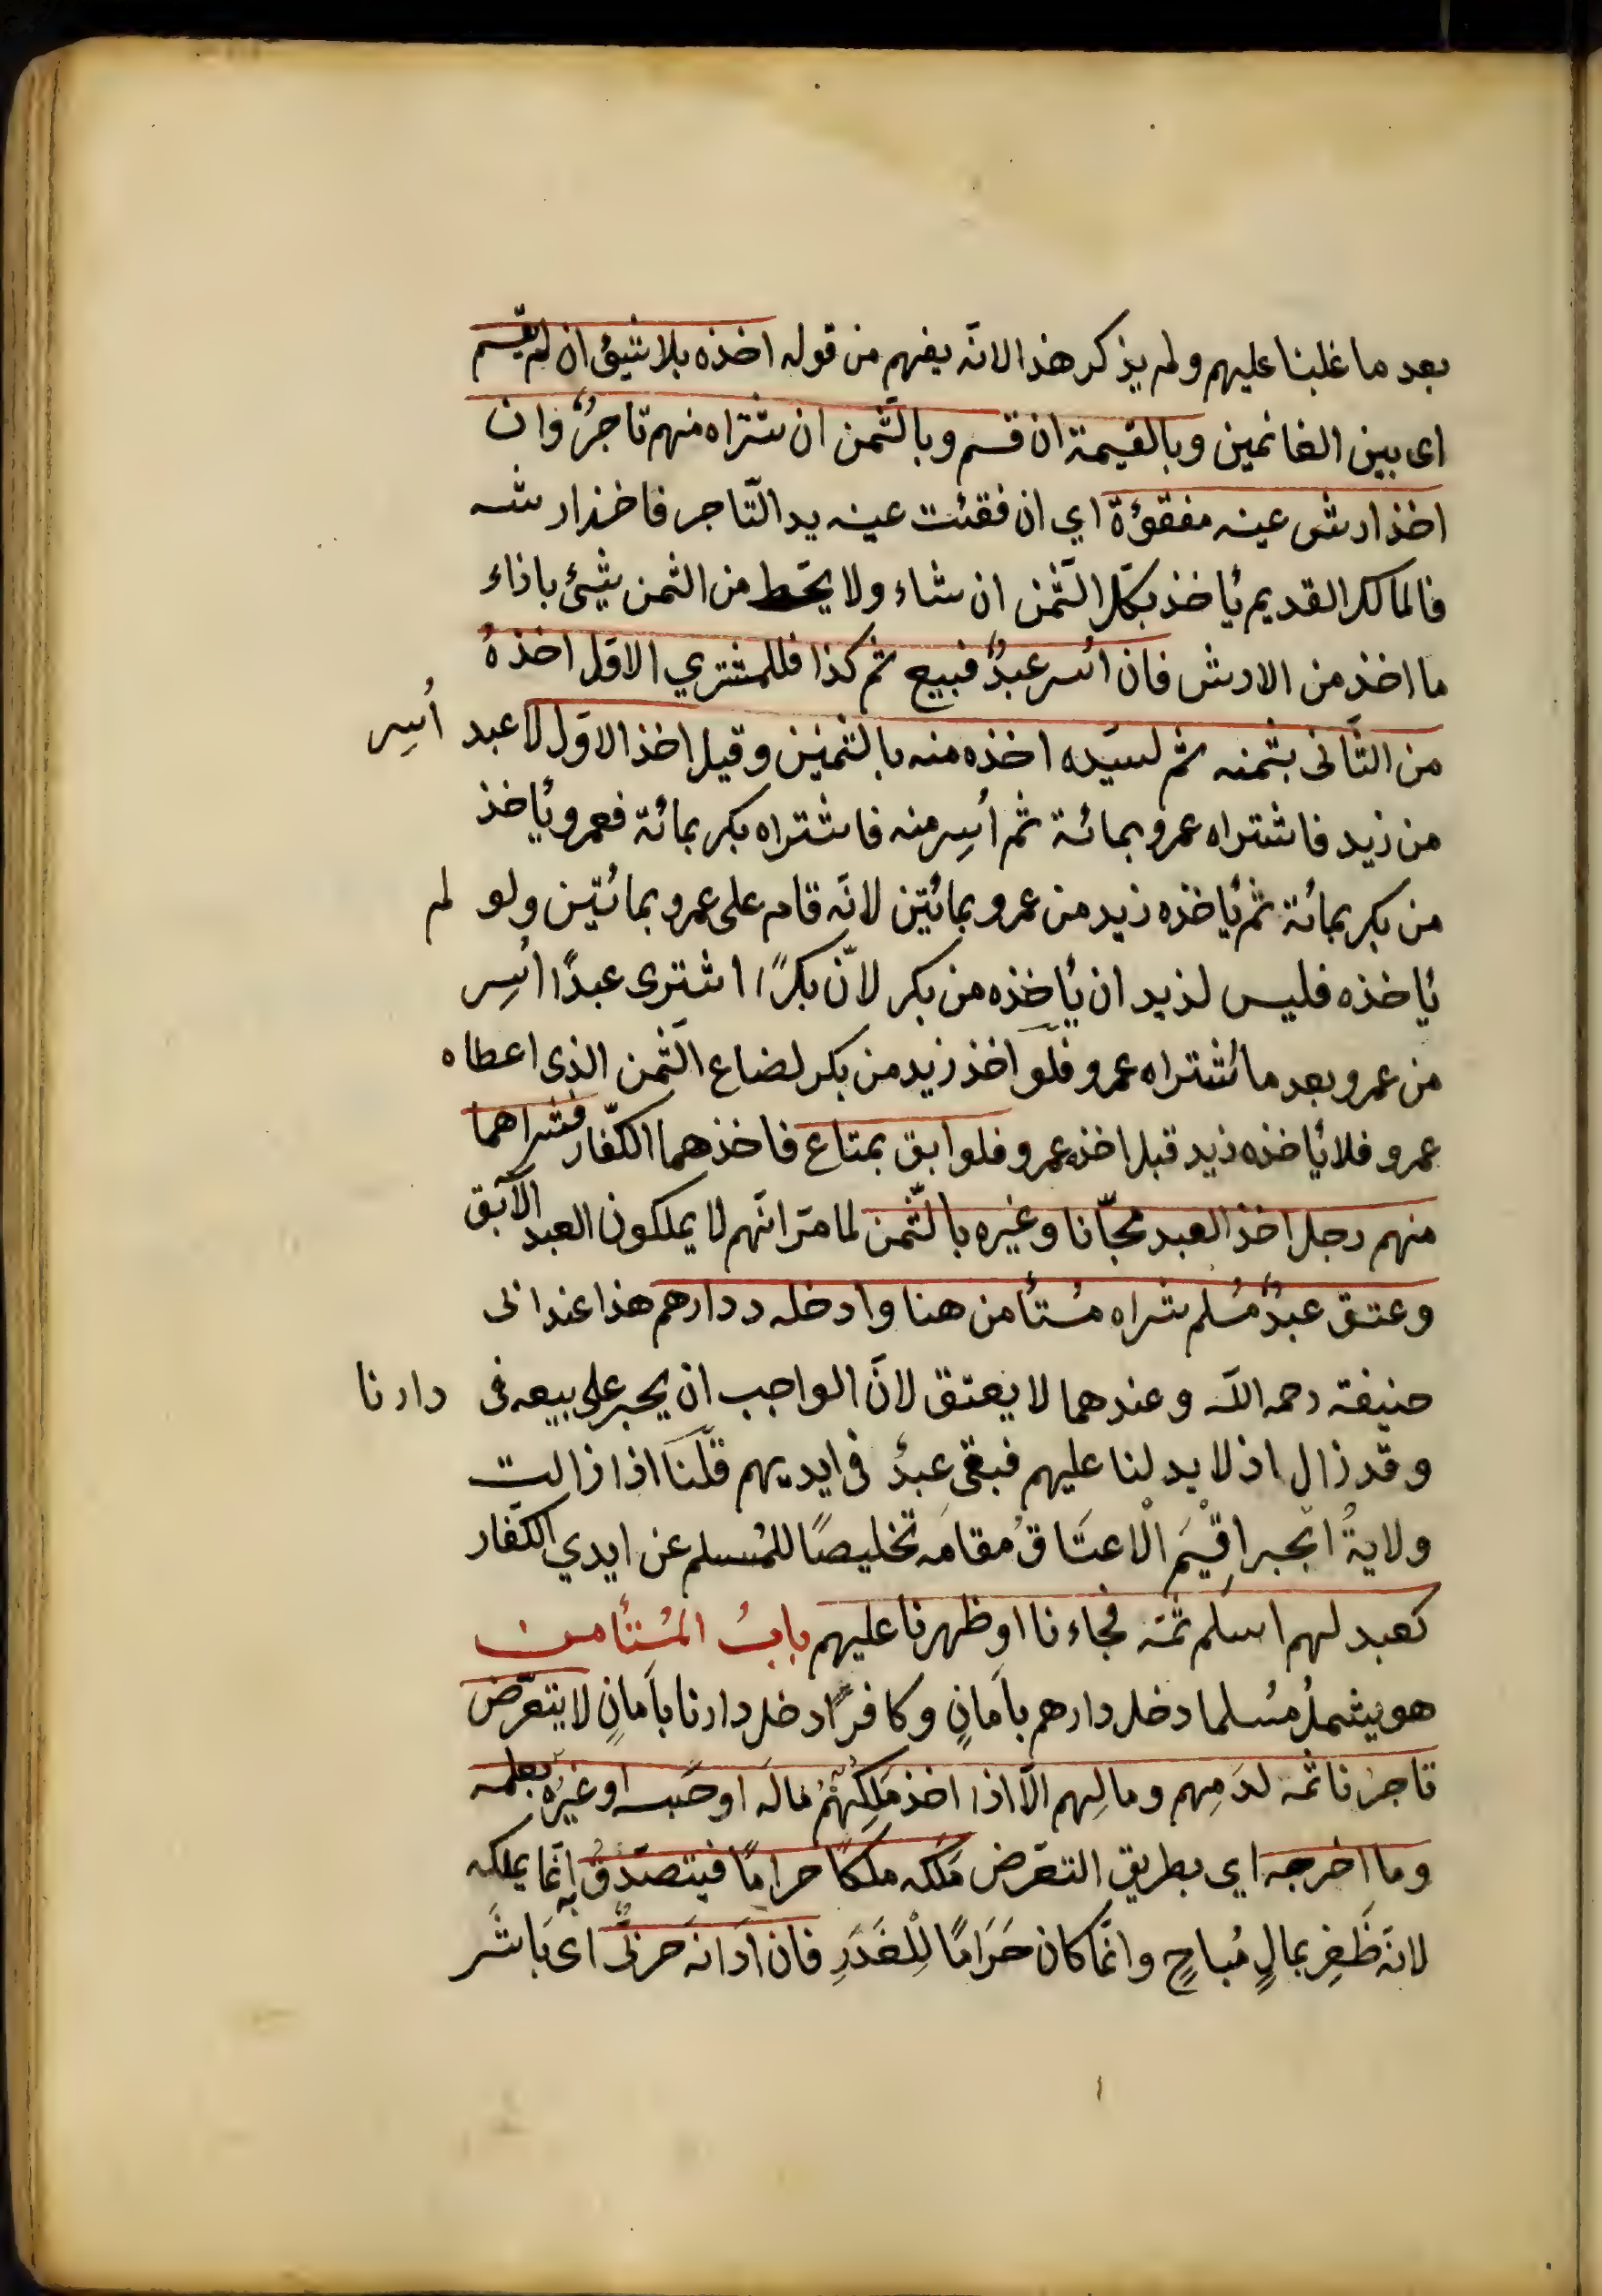 بعد ما غلبنا عليهم ولم يذكر هذا لانّه يفهم من قوله اخذه بلا شيئ ان لم يقسم
اى بين الغانمين وبالقيمة ان قسم وبالثّمن ان شتراه منهم تاجرٌ وان
اخذ ارش عينه مفقؤة اي ان فقئت عينه يد التّاجر فاخذ ارشه
فالمالك القديم ياخذ بكلّ الثّمن ان شاء ولا يحّط من الثمن شيئ باذاء
ما اخذ من الارش فان اسر عبدٌ فبيع ثم كذا فللمشتري الاوّل اخذهُ
من الثّانى بثمنه ثم لسيّده اخذه منه بالثمنين وقيل اخذ الاوّل لا عبد أسِر
من زيد فاشتراه عمرو بمائة ثم أسِر منه فاشتراه بكر بمائة فعمرو ياخذ
من بكر بمائة ثم ياخذه زيد من عمرو بمائتين لانّه قام على عمرو بمائتين ولو لم
ياخذه فليس لزيد ان ياخذه من بكر لانّ بكرًا اشترى عبدًا اُسِر
من عمرو بعد ما شتراه عمرو فلو اخذ زيد من بكر لضاع الثّمن الذى اعطاه
عمرو فلا ياخذه زيد قبل اخذ عمرو فلو ابق بمتاع فاخذهما الكفّار فشراهما
منهم رجل اخذ العبد مجّانا وغيره بالثّمن لما مرّ انّهم لا يملكون العبد الآبق
وعتق عبدٌ مُسلم شراه مُستأمن هنا وادخله دارهم هذا عند ابى
حنيفة رحمه اللّه وعندهما لا يعتق لانّ الواجب ان يجبر على بيعه فى دارنا
وقد زال اذ لا يد لنا عليهم فبقى عبدٌ فى ايديهم قلنا اذا زالت
ولايةُ الجبر اقِيْمَ الْاعتَاقُ مُقامَه تخليصًا للمُسلم عن ايدي الكفّار
كعبد لهم اسلم ثمّه فجاءنا او ظهرنا عليهم بابُ المُستأمن
هو يشملُ مُسلما دخل دارهم بأمانٍ وكافرًا دخل دارنا بأمانٍ لا يتعرّض
تاجرُنا ثمّه لدَمِهم ومالِهم الّا اذا اخذ مَلِكُهُمْ مالَه او حَبسه او غيرُه بعلمه
وما اخرجه اي بطريق التعرّض مَلَكه ملكًا حرامًا فيتصدّقُ به انّما يملكه
لانّه ظَفِر بمالٍ مُباحٍ وانّما كان حَرَامًا لِلْغَدَرِ فان ادَانَه حَربىٌّ اى بَاشَر